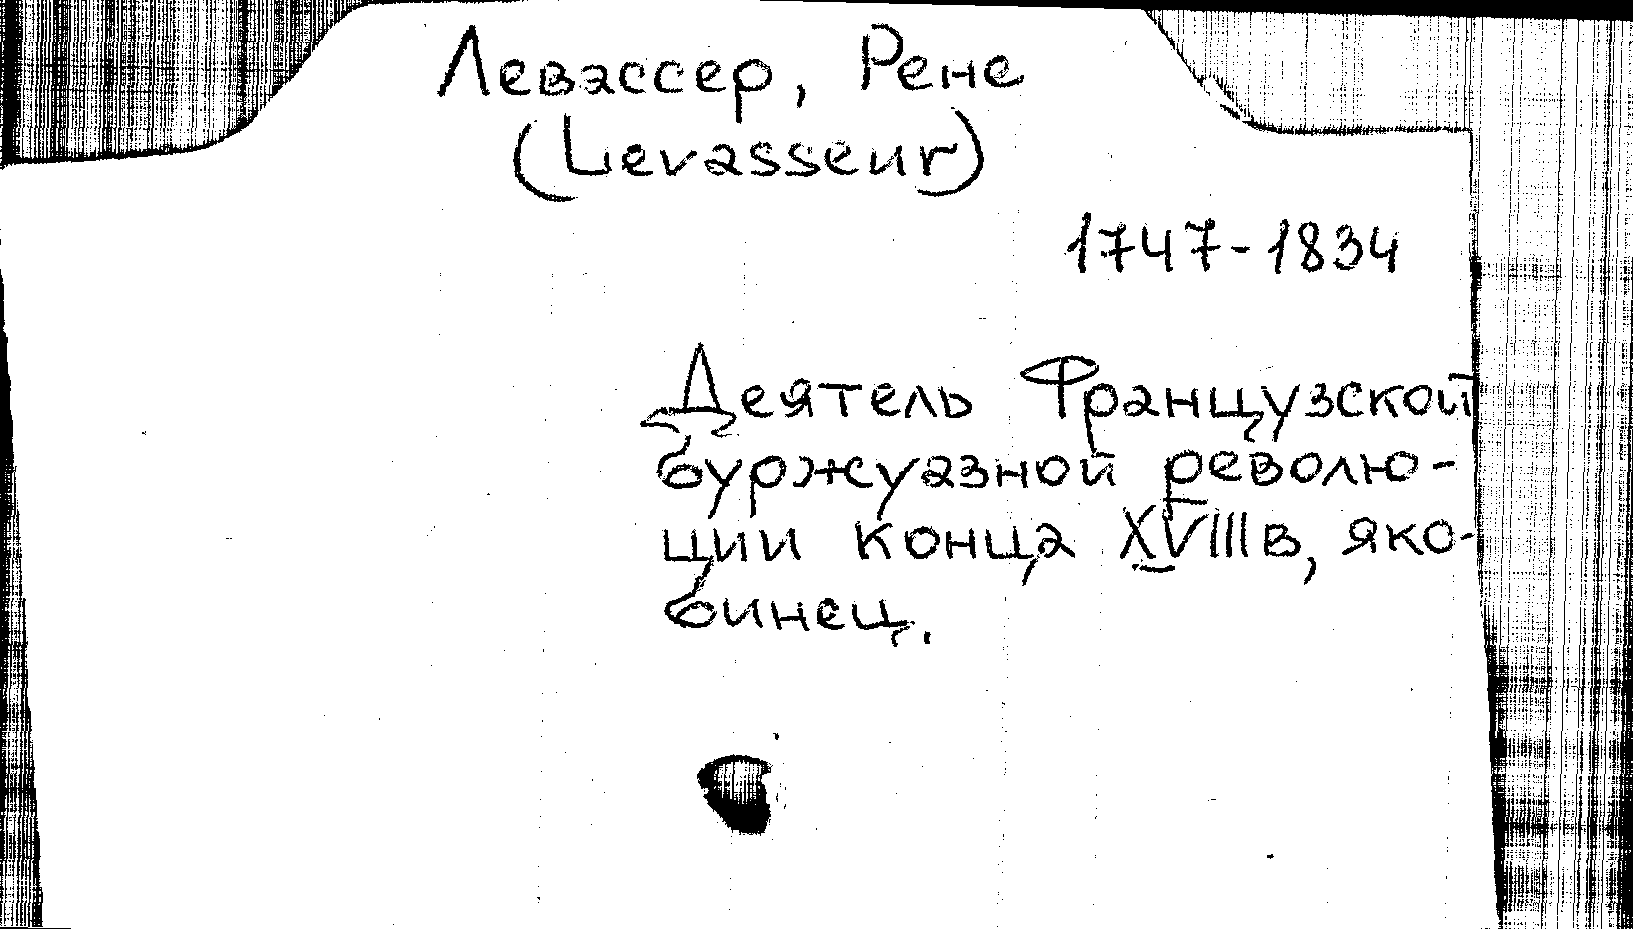 Левассер, Рене
(Levasseur)
1747-1834
Деятель Французской
буржуазной револю-
ции конца XVIII в, яко-
бинец.